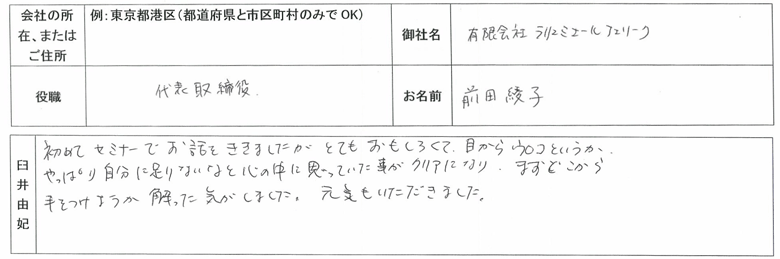 会社の所在、またはご住所
例:東京都港区(都道府県と市区町村のみでOK)
御社名
有限会社
役職
代表取締役
お名前
前田綾子
臼井由妃
初めて セミナーで お話を ききましたが とても おもしろくて、目からウロコというか、
やっぱり自分に足りないなと心の中に思っていた事がクリアになり、まずどこから
手をつけようか 解った気がしました。元気もいただきました。